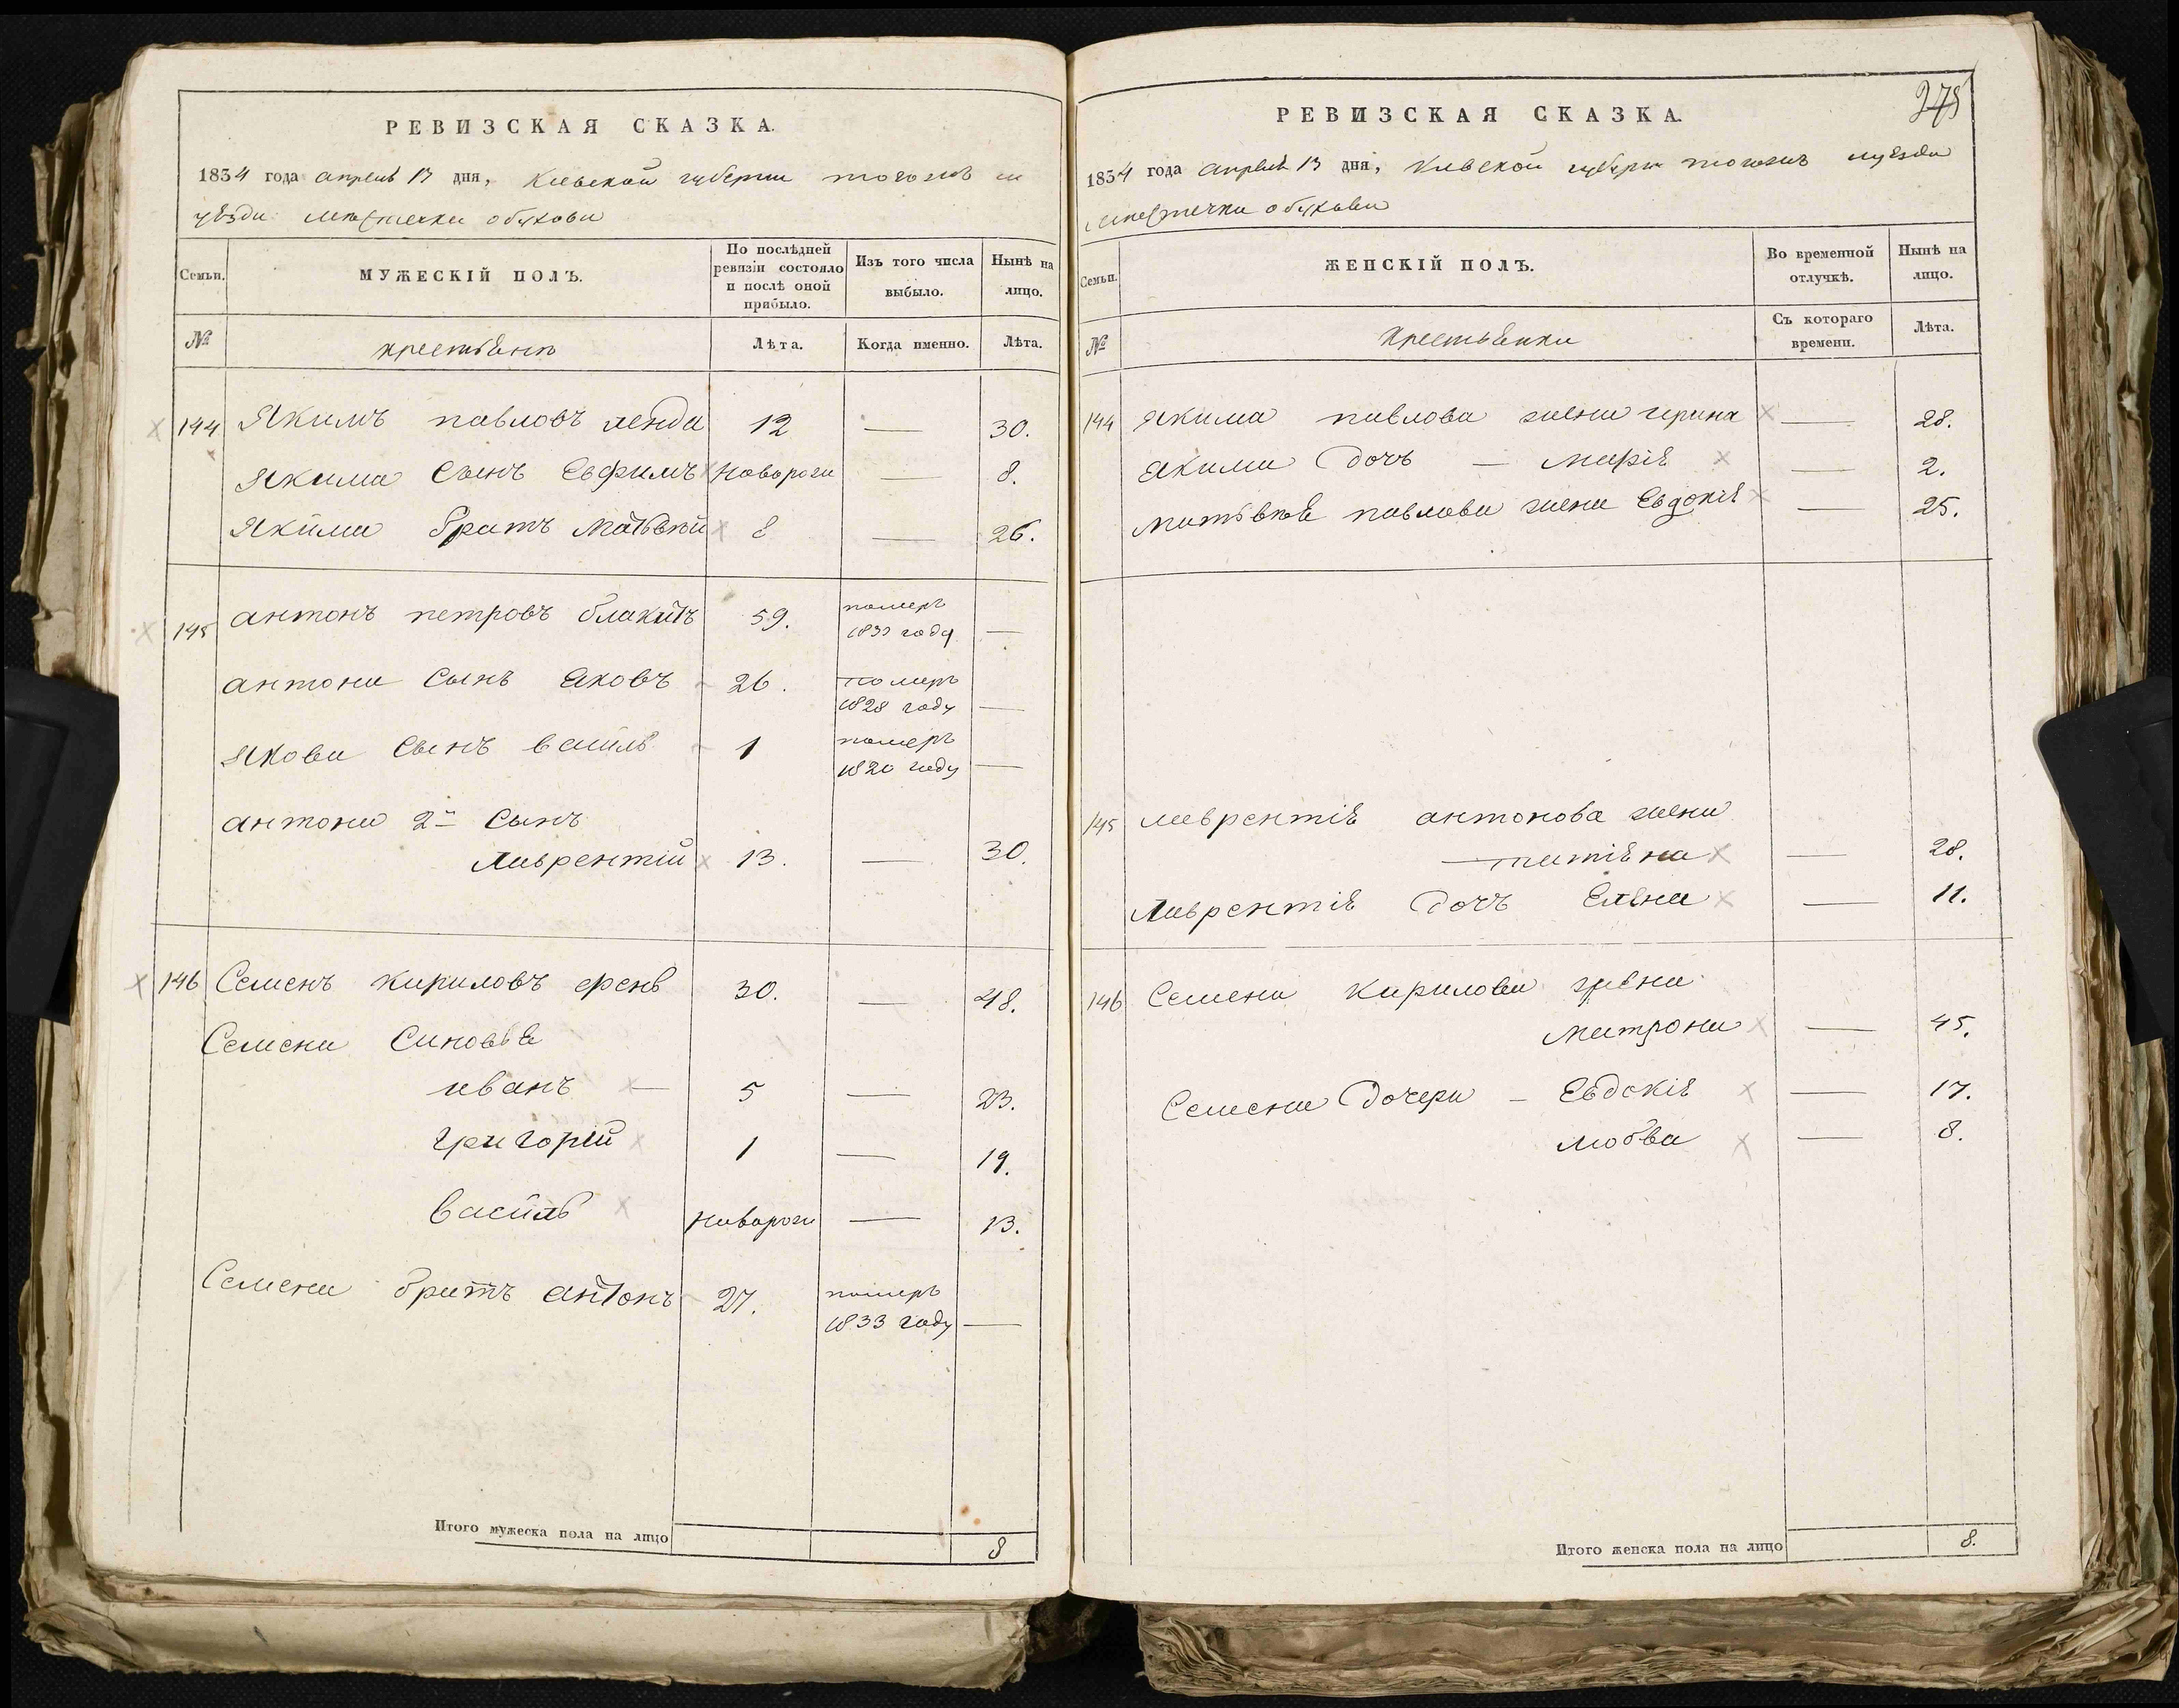 РЕВИЗСКАЯ СКАЗКА.
1834 года апреля 13 дня, Киевской губернии тогожъ
уѣзда местечка обухова
Семьи. МУЖЕСКІЙ ПОЛЪ. По послѣдней ревизіи состояло и послѣ оной прибыло. Изъ того числа выбыло. Нынѣ на лицо.
№ крестьянъ Лѣта. Когда именно. Лѣта.
144 Якимъ павловъ ленда 12 — 30.
Якима Сынъ Евфимъ новорож — 8.
Якима братъ Матвѣй 8 — 26.
145 антонъ петровъ блакитъ 59. померъ
1833 году —
антона Сынъ Яковъ 26. померъ
1828 году —
Якова Сынъ василь 1 померъ
1820 году —
антона 2й Сынъ
Лаврентій 13. — 30.
146 Семенъ кириловъ 30. — 48.
Семена Синовья
иванъ — 5 — 23.
григорій 1 — 19.
василь новорож — 13.
Семена братъ антонъ 27. померъ
1833 году —
Итого мужеска пола на лицо 8
275
РЕВИЗСКАЯ СКАЗКА.
1834 года апреля 13 дня, Киевской губерни тогожъ уѣзда
местечка обухова
Семьи. ЖЕНСКІЙ ПОЛЪ. Во временной отлучкѣ. Нынѣ на лицо.
№ крестьянки Съ котораго времени. Лѣта.
144 Якима павлова жена ирина — 28.
Якима дочъ — марія — 2.
матвѣя павлова жена Евдокія — 25.
145 лаврентія антонова жена
— татіяна — 28.
Лаврентія дочъ Елена — 11.
146 Семена Кирилова жена
матрона — 45.
Семена дочери — Евдокія — 17.
любва — 8.
Итого женска пола на лицо 8.